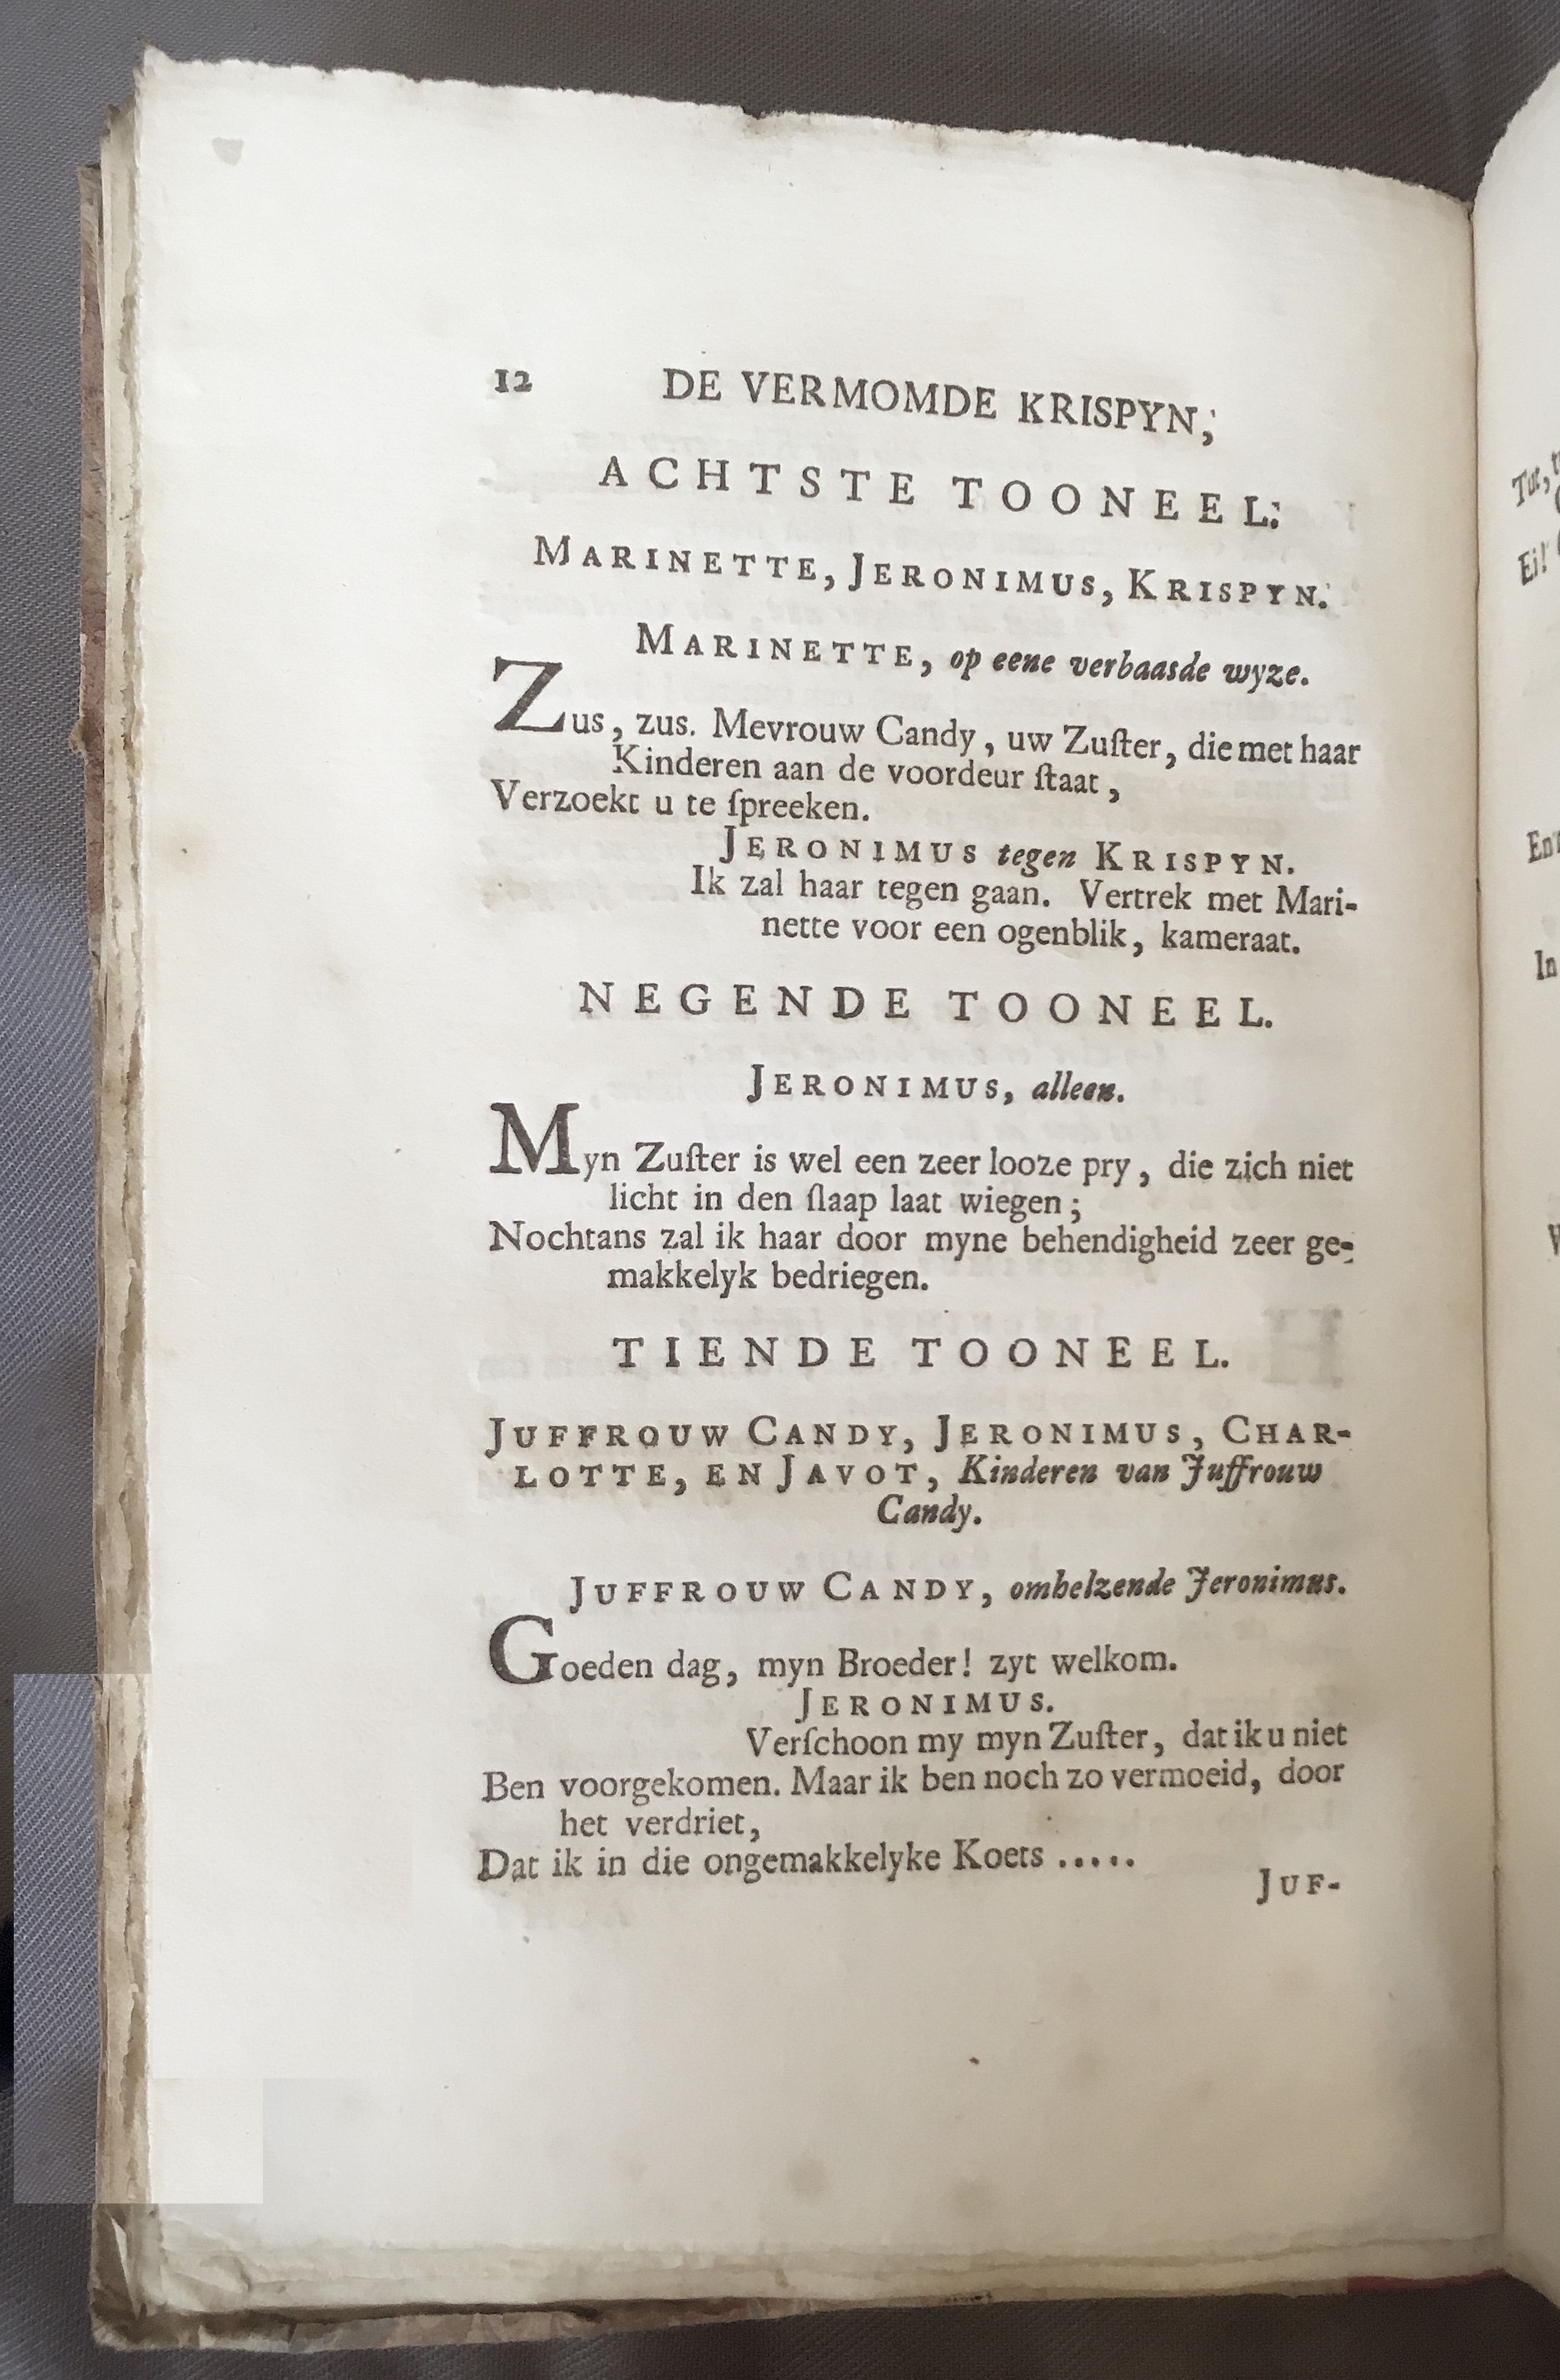 12 DE VERMOMDE KRISPYN,
ACHTSTE TOONEEL.
MARINETTE, JERONIMUS, KRISPYN.
MARINETTE, op eene verbaasde wyze.
Zus, zus. Mevrouw Candy, uw Zuſter, die met haar
Kinderen aan de voordeur ſtaat,
Verzoekt u te ſpreeken.
JERONIMUS tegen KRISPYN.
Ik zal haar tegen gaan. Vertrek met Mari-
nette voor een ogenblik, kameraat.
NEGENDE TOONEEL.
JERONIMUS, alleen.
Myn Zuſter is wel een zeer looze pry, die zich niet
licht in den ſlaap laat wiegen;
Nochtans zal ik haar door myne behendigheid zeer ge-
makkelyk bedriegen.
TIENDE TOONEEL.
JUFFROUW CANDY, JERONIMUS, CHAR-
LOTTE, EN JAVOT, Kinderen van Juffrouw
Candy.
JUFFROUW CANDY, omhelzende Jeronimus.
Goeden dag, myn Broeder! zyt welkom.
JERONIMUS.
Verſchoon my myn Zuſter, dat ik u niet
Ben voorgekomen. Maar ik ben noch zo vermoeid, door
het verdriet,
Dat ik in die ongemakkelyke Koets .....
JUF-
Ei!
In